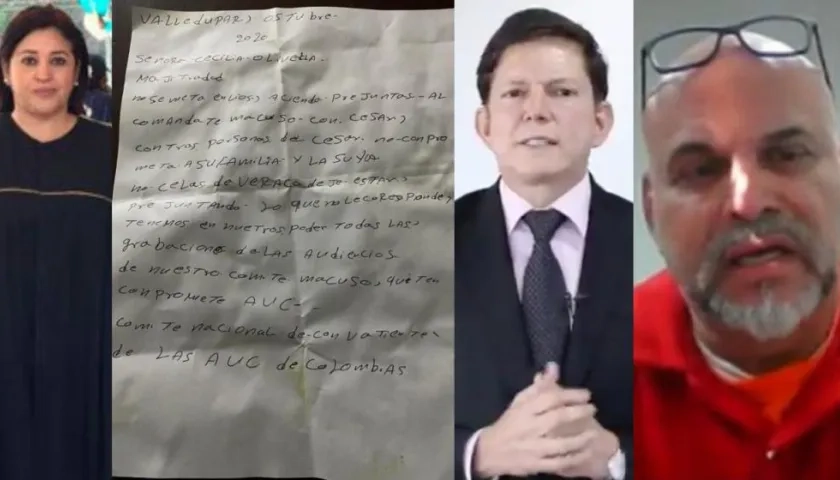 VALLeduPAR, OSTubre-
2020
Señora CeciLia OLiveLLA.
MAJiTrada
no Se meTA en Lios, Aciendo PreJunTAS-AL
comandaTe mAcuSo-con. CeSAr,
con Tros PerSonas deL CeSAr. no-conPro
meTA-ASU FAMiLiA y LA SUyA
no
PreJunTAndo-Lo que no Le coresPonde,
Tenemos en nueTros, Poder TodAS LAS,
grabacione de LAS Audiencias
de nuesTro comiTe mAcuSo,
comPromeTe AUC--
comiTe nacional de
de LAS AUC de CoLombias